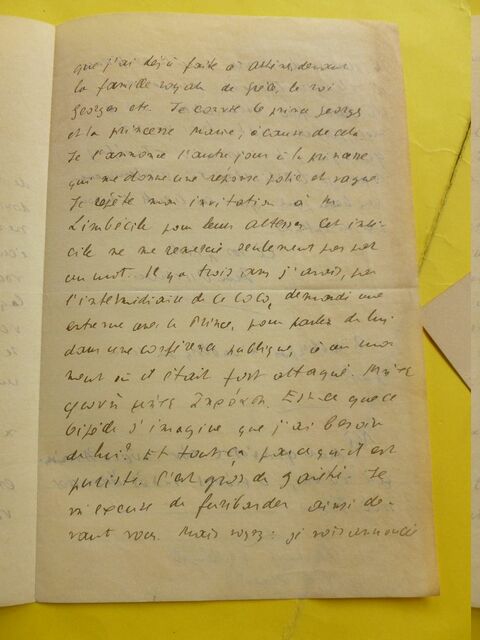 que j'ai déjà faite à Athènes, devant
la famille royale de Grèce, le roi
Georges etc. Je convie le prince Georges
et la princesse Marie, à cause de cela
Je l'annonce l'autre jour à la princesse
qui me donne une réponse polie et vague
Je répète mon invitation à
L'imbécile pour leurs altesses Cet imbé-
cile ne me remercie seulement pas par
un mot. Il y a trois ans j'avais, par
l'intermédiaire de ce coco, demandé une
entrevue avec le Prince, pour parler de lui
dans une conférence publique, à un mo-
ment où il était fort attaqué. Μήτε
φωνή μήτε ἀκρόασις. Est-ce que ce
bipède s'imagine que j'ai besoin
de lui? Et tout ça parce qu'il est
puriste. C'est gros de gaieté. Je
m'excuse de furibonder ainsi de-
vant vous. Mais voyez: je vois annoncé